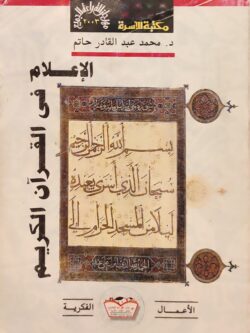 مكتبة الأسرة
٢٠٠٣
د. محمد عبد القادر حاتم
الإعلام فى القرآن الكريم
بسم الله الرحمن الرحيم
سبحان الذى أسرى بعبده
ليلا من المسجد الحرام إلى
الأعمال
الفكرية